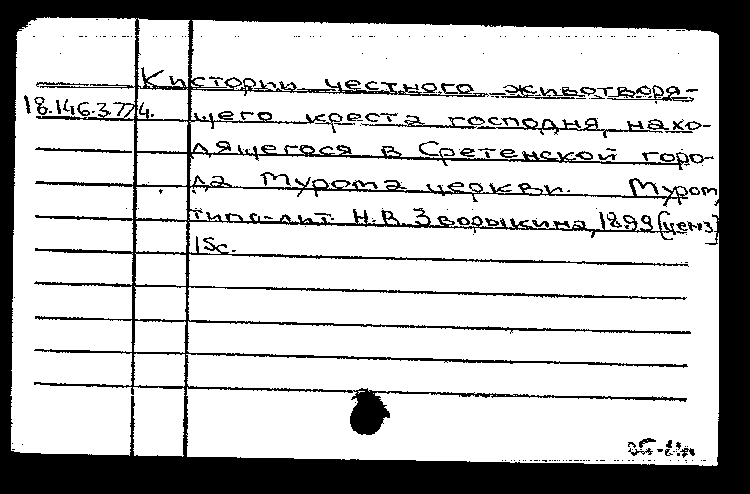 К истории честного животворя-
18.146.3.77/4. щего креста господня, нахо-
дящегося в Сретенской горо-
да Мурома церкви. Муром,
типо-лит. Н.В. Зворыкина, 1899 [ценз]
15с.